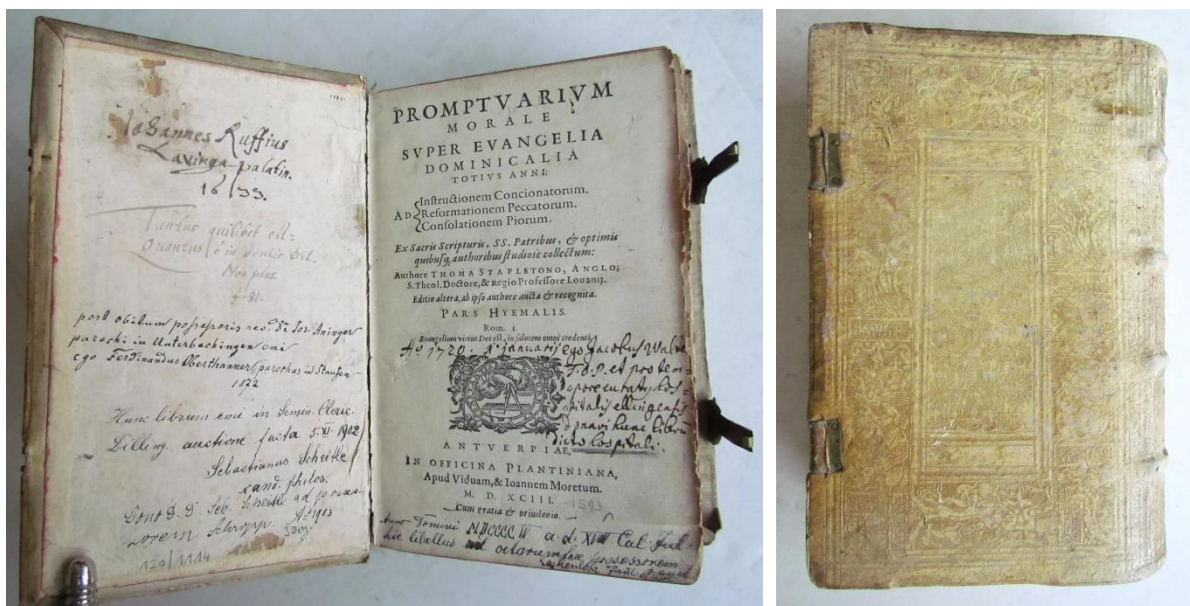 Johannes Ruffius
Lavinga-palatin.
1633.
Tantus quilibet est
Quantus
Non plus.
post obitum possessoris
parochi in Unterbechingen emi
ego Ferdinandus Oberthanner, parochus in Staufen
1872
Hunc librum emi in Semin. Cleric.
Dilling. auctione facta 5. XI. 1902
Sebastianus Scheitle
cand. philos.
Dono D. D. Seb. Scheitle ad
1903
120/1114
PROMPTVARIVM
MORALE
SVPER EVANGELIA
DOMINICALIA
TOTIVS ANNI:
AD
Instructionem Concionatorum.
Reformationem Peccatorum.
Consolationem Piorum.
Ex Sacris Scripturis, SS. Patribus, & optimis
quibusq, authoribus studiose collectum:
Authore THOMA STAPLETONO, ANGLO;
S. Theol. Doctore, & Regio Professore Louanij.
Editio altera, ab ipso authore aucta & recognita.
PARS HYEMALIS.
Rom. 1.
Euangelium virtus Dei est, in salutem omni credenti
1720. januarij ego Jacobus
et pro tem-
pore
hos-
pitalis ellingensis
donavi hunc librũ
dicto hospitali.
ANTVERPIAE,
IN OFFICINA PLANTINIANA,
Apud Viduam, & Ioannem Moretum.
M. D. XCIII.
1593
Cum gratia & priuilegio.
Anno Domini MDCCCCIII a. d. XVIII Cal. Jul.
hic libellus possessorem